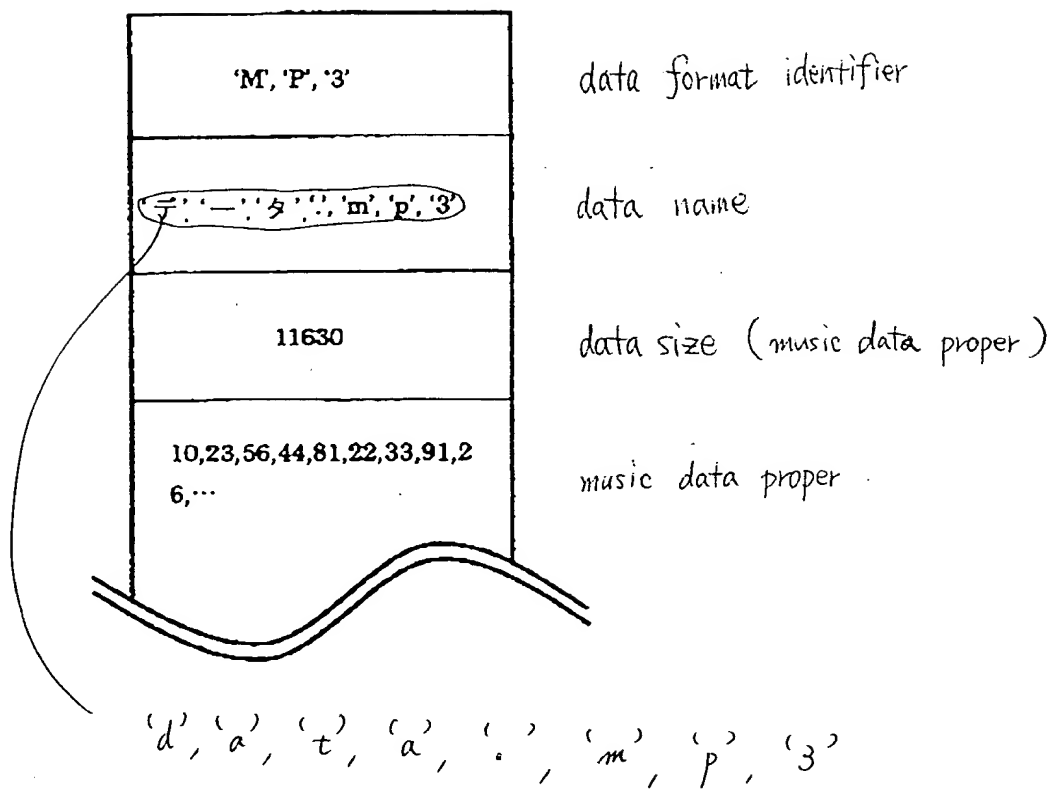 ‘M’, ‘P’, ‘3’ data format identifier
‘デ’, ‘ー’, ‘タ’, ‘.’, ‘m’, ‘p’, ‘3’ data name
11630 data size (music data proper)
10,23,56,44,81,22,33,91,2
6,… music data proper
‘d’, ‘a’, ‘t’, ‘a’, ‘.’, ‘m’, ‘p’, ‘3’